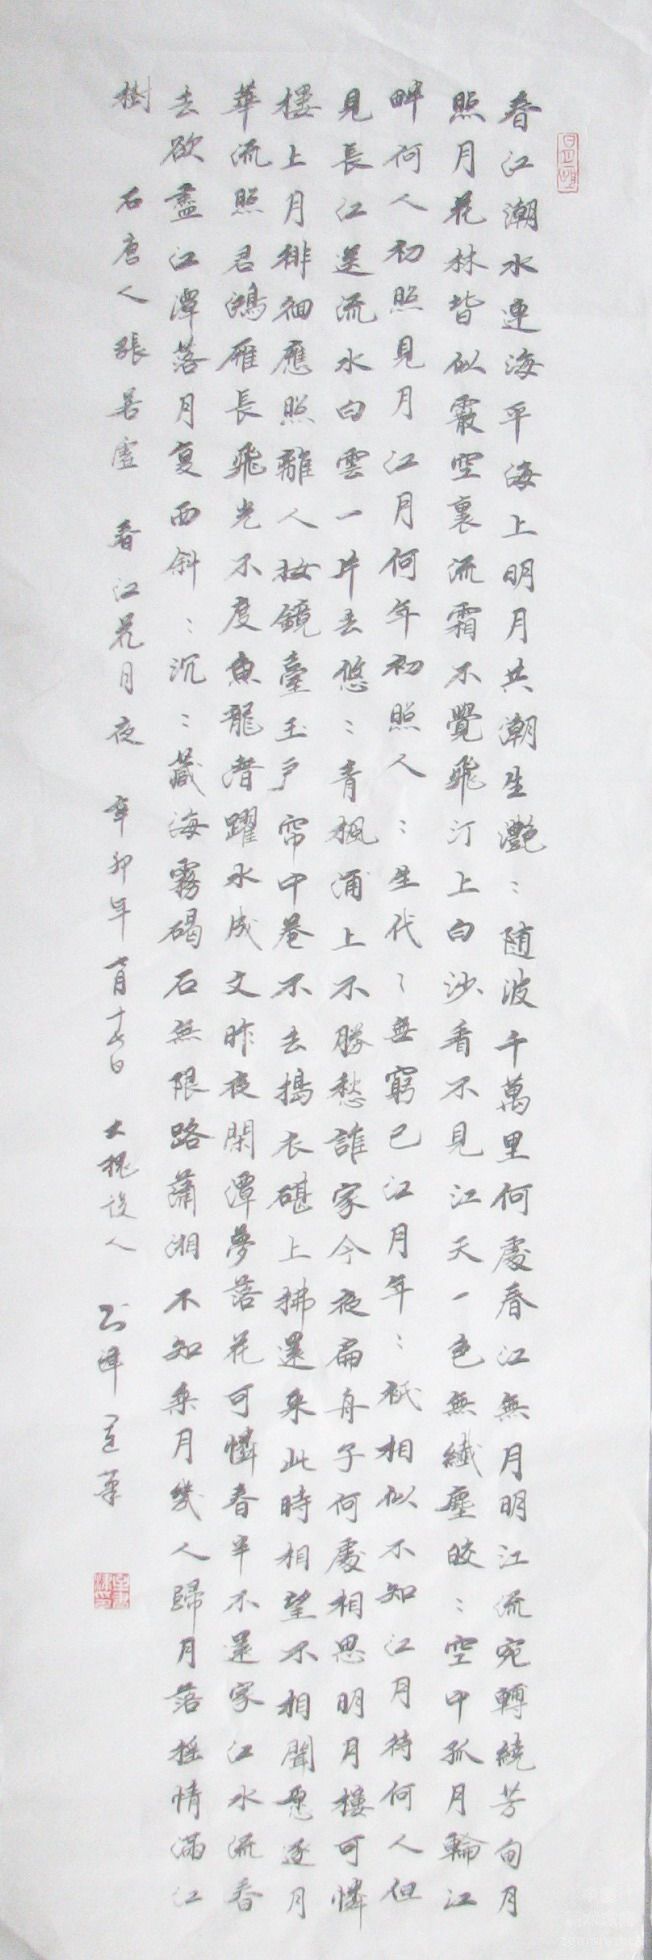 春江潮水連海平海上明月共潮生灧:随波千萬里何處春江無月明江流宛轉繞芳甸月
照月花林皆似霰空裏流霜不覺飛汀上白沙看不見江天一色無纖塵皎:空中孤月輪江
畔何人初照見月江月何年初照人:生代:無窮已江月年:祇相似不知江月待何人但
見長江送流水白雲一片去悠:青楓浦上不勝愁誰家今夜扁舟子何處相思明月樓可憐
樓上月徘徊應照離人妝鏡臺玉戶帘中卷不去搗衣碪上拂還来此時相望不相聞愿逐月
華流照君鴻雁長飛光不度魚龍潛躍水成文昨夜閑潭夢落花可憐春半不還家江水流春
去欲盡江潭落月复西斜:沉:藏海霧碣石無限路蕭湘不知乘月幾人歸月落摇情滿江
樹 右唐人張若虛 春江花月夜 辛卯年 月十七日 大槐後人